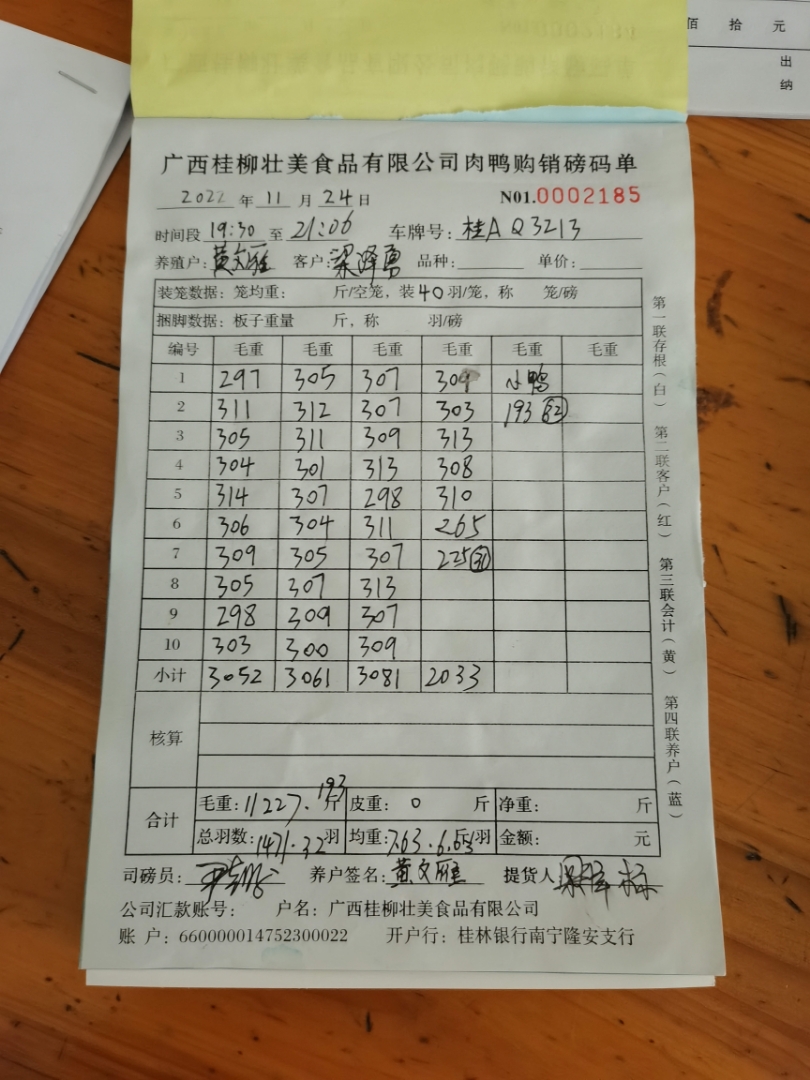 佰 拾 元
出
纳
广西桂柳壮美食品有限公司肉鸭购销磅码单
2022 年 11 月 24 日 N01.0002185
时间段 19:30 至 21:06 车牌号: 桂A Q3213
养殖户: 黄文雁 客户: 梁泽勇 品种: 单价:
装笼数据: 笼均重: 斤/空笼, 装 40 羽/笼, 称 笼/磅
捆脚数据: 板子重量 斤, 称 羽/磅
编号 毛重 毛重 毛重 毛重 毛重 毛重
1 297 305 307 304 小鸭
2 311 312 307 303 193 32
3 305 311 309 313
4 304 301 313 308
5 314 307 298 310
6 306 304 311 265
7 309 305 307 225 31
8 305 307 313
9 298 309 307
10 303 300 309
小计 3052 3061 3081 2033
核算
合计 毛重: 11227.193 斤 皮重: 0 斤 净重: 斤
总羽数: 1471.32 羽 均重: 7.63. 斤/羽 金额: 元
司磅员: 养户签名: 黄文雁 提货人
公司汇款账号: 户名: 广西桂柳壮美食品有限公司
账 户: 660000014752300022 开户行: 桂林银行南宁隆安支行
第一联存根(白) 第二联客户(红) 第三联会计(黄) 第四联养户(蓝)